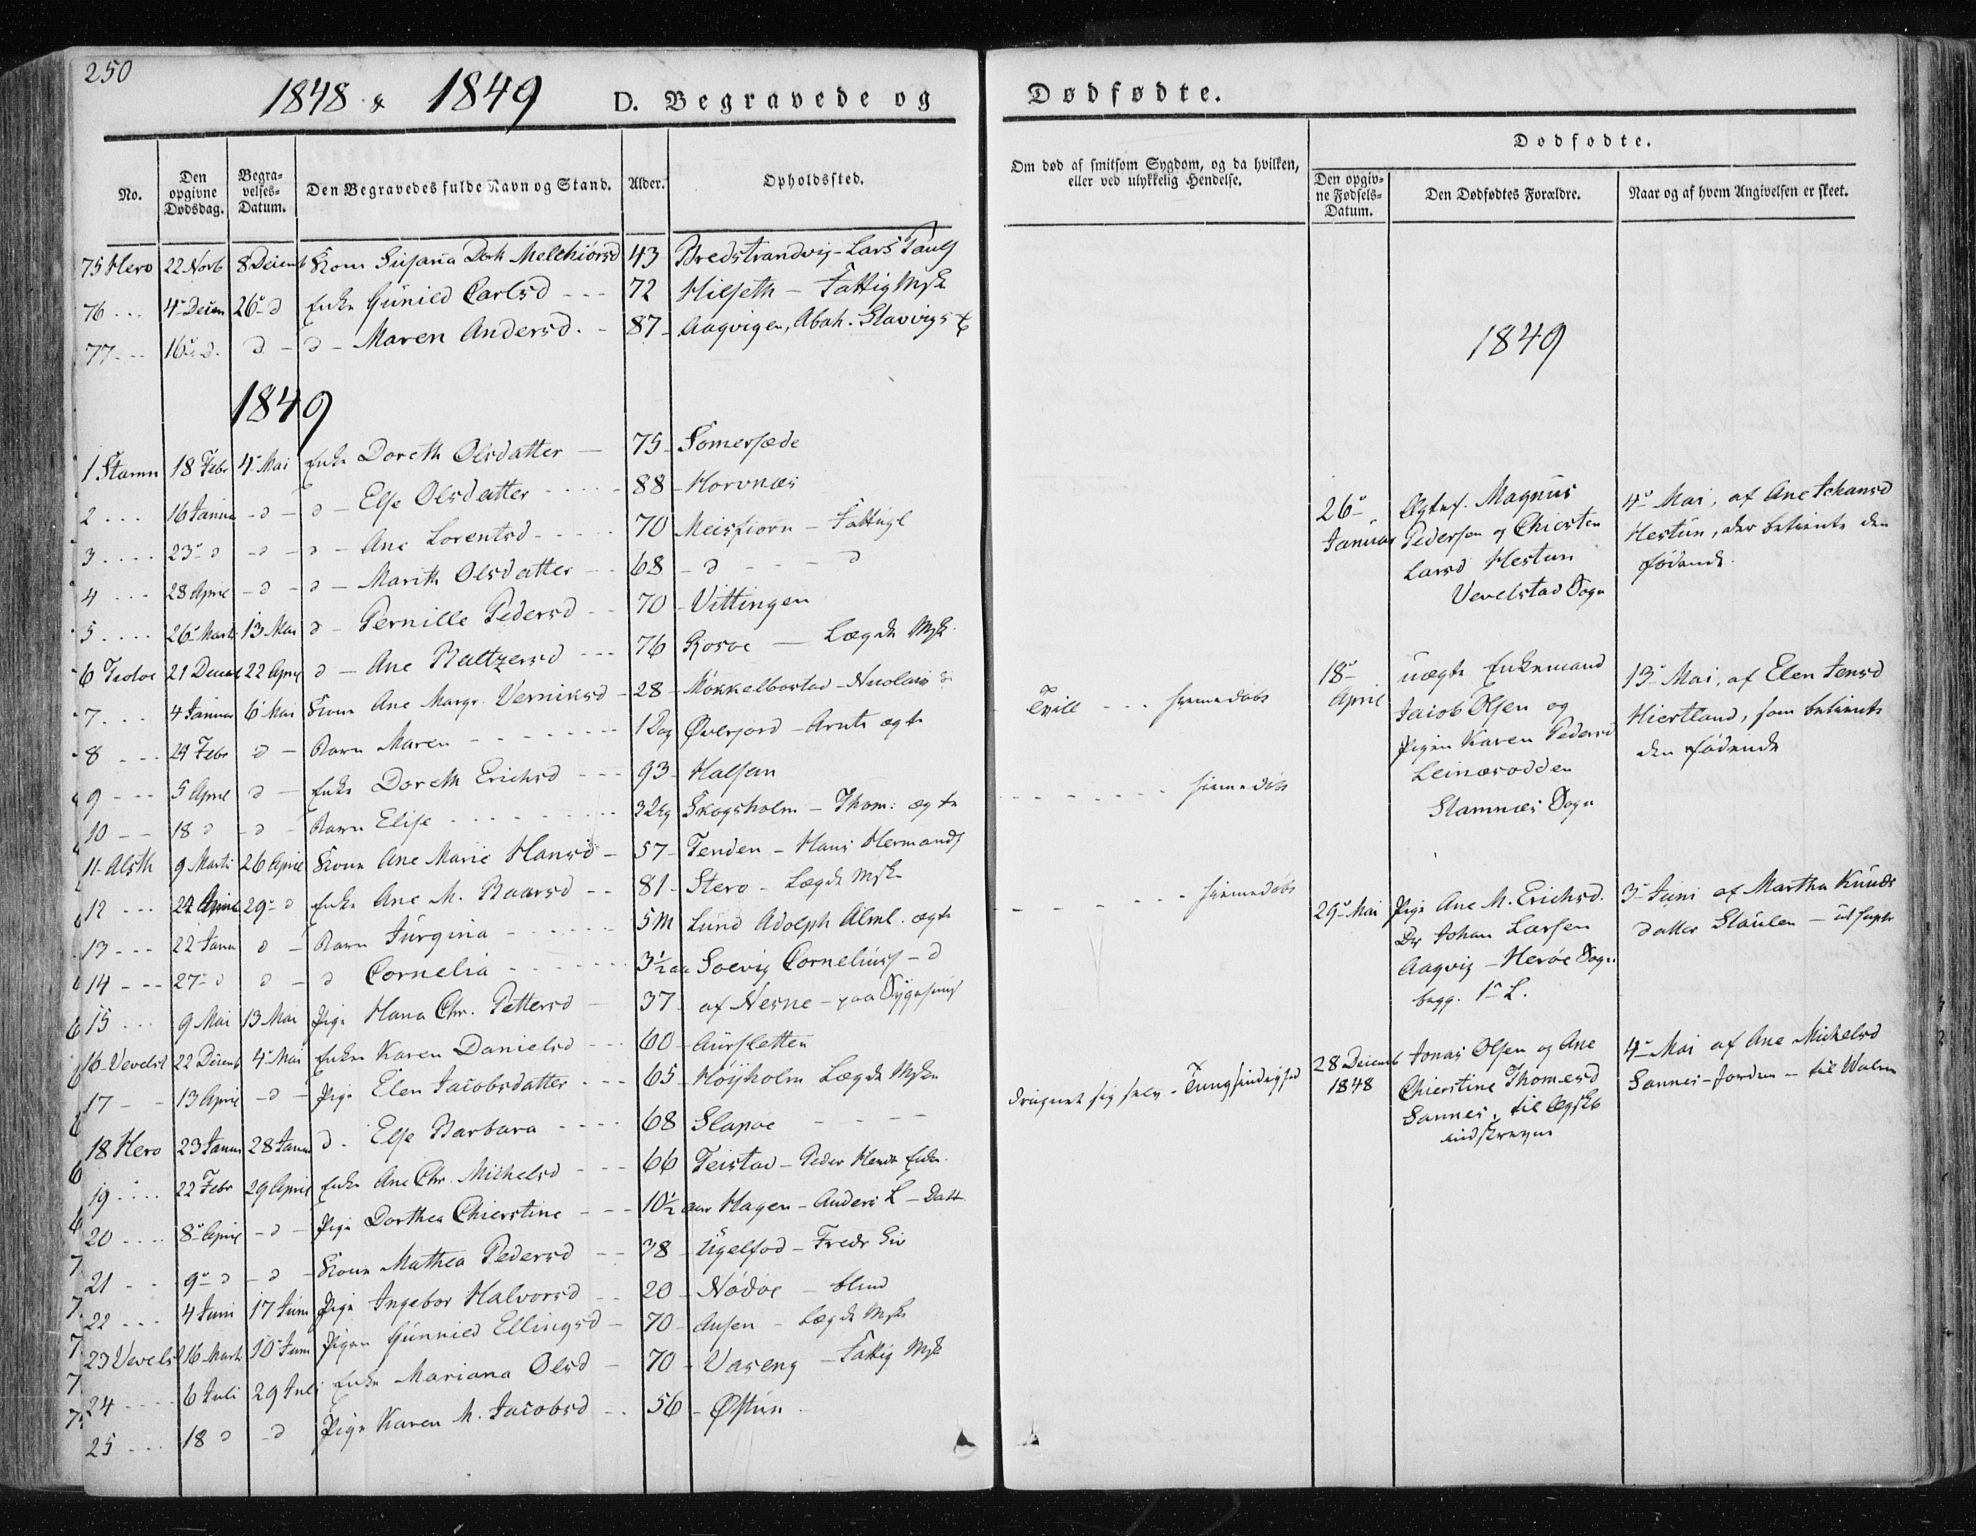 250
1848 & 1849 D. Begravede og Dødfødte.
No. Den opgivne Dødsdag. Begravelses-Datum. Den Begravedes fulde Navn og Stand. Alder. Opholdssted.
75 Hero 22 Novb 8 Decemb Kone Susana Dork Melchiorsd 43 Bredstrandvig - Lars Pauls
76 4 Decem 26 d Enke Gunild Carlsd 72 Hilseth - Fattig Msk
77 16 d. d - d - Maren Andersd. 87 Aagvigen, Abah. Slavvigs
1849
1 Stamn 18 Febr 4 Mai Enke Doreth Olsdatter 75 Somersæde
2 16 Janua d - d - Else Olsdatter 88 Horvnæs
3 23 d d - d - Ane Lorentsd 70 Meisfiorn - Fattigl
4 28 April d - d - Marith Olsdatter 68 d d
5 26 Marti 13 Mai d - Pernille Pedersd 70 Vittingen
6 Tiotoe 21 Decemb 22 April d - Ane Baltzersd 76 Rosoe - Lægds Msk.
7 4 Januar 6 Mai Kone Ane Margr. Verniksd 28 Møkkelbostad - Nicolais
8 24 Febr d - Barn Maren 1 Dag Øverjord - Arnts ægte
9 5 April d - Enke Doreth Erichsd 93 Halsen
10 18 d d - Barn Elise 3 Dag Skogsholm - Thom: ægte
11 Alsth 9 Marti 26 April Kone Ane Marie Hansd 57 Tenden - Hans Hermands
12 24 April 29 d Enke Ane M. Baarsd 81 Stero - Lægds Msk
13 22 Janu d - Barn Jurgina 5 M Lund Adolph Alml. ægte
14 27 d d - d Cornelia 3½ aar Soevig Cornelius - d
15 9 Mai 13 Mai Pige Hana Chr. Pettersd 37 af Nesne - paa Sygehuus
16 Vevelst 22 Decemb 4 Mai Enke Karen Danielsd 60 Aursletten
17 13 April d - Pige Elen Jacobsdatter 65 Høyholm Lægds Msk
18 Hero 23 Janua 28 Janua d. Else Barbara 68 Slapoe
19 22 Febr 29 April Enke Ane Chr. Michelsd 66 Teistad - Peder Hendr Enke
20 8 April d - Pige Dorthea Chierstine 10½ aar Hagen - Anders L - Datt
21 9 d d - Kone Mathea Pedersd 38 Ugelfod - Fredr
22 4 Juni 17 Juni Pige Ingebor Halvorsd 20 Nødøe - blind
23 Vevelst 16 Marti 10 Juni Pigen Gunnild Ellingsd 70 Ausen - Lægds Msk
24 6 Juli 29 Juli Enke Mariana Olsd 70 Vaseng - Fattig Msk
25 18 d d Pige Karen M. Jacobsd 56 Østun
Om død af smitsom Sygdom, og da hvilken, eller ved ulykkelig Hendelse.
Tvill hiemedøbt
hiemedøbt
hiemedøbt
druknet sig selv - Tungsindighed
Dødfødte.
Den opgivne Fødsels-Datum. Den Dødfødtes Forældre. Naar og af hvem Angivelsen er skeet.
1849
26 Januar Ægtef. Magnus Pedersen og Chiersten Larsd Hestun Vevelstad Sogn
4 Mai, af Ane Johansd Hestun, der betiente den fødende.
18 April uægte Enkemand Jacob Olsen og Pigen Karen Pedersd Leinæsodden Stamnæs Sogn
13 Mai, af Elen Jensd Hiertland, som betiente den fødende
29 Mai Pige Ane M. Erichsd. Dr Johan Larsen Aagvig - Herøe Sogn begg. 1 L.
3 Juni af Martha Knudsdatter Staulen
28 Decemb 1848 Jonas Olsen og Ane Chierstine Thomæsd Sannes, til Ægtsk indskreven
4 Mai af Ane Michelsd Sannes-Jorden